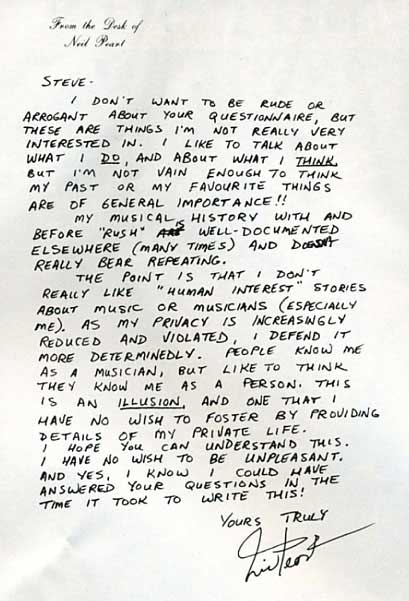 From the Desk of
Neil Peart
STEVE-
I DON'T WANT TO BE RUDE OR
ARROGANT ABOUT YOUR QUESTIONNAIRE, BUT
THESE ARE THINGS I'M NOT REALLY VERY
INTERESTED IN. I LIKE TO TALK ABOUT
WHAT I DO, AND ABOUT WHAT I THINK,
BUT I'M NOT VAIN ENOUGH TO THINK
MY PAST OR MY FAVOURITE THINGS
ARE OF GENERAL IMPORTANCE!!
MY MUSICAL HISTORY WITH AND
BEFORE "RUSH" IS WELL-DOCUMENTED
ELSEWHERE (MANY TIMES) AND DOESN'T
REALLY BEAR REPEATING.
THE POINT IS THAT I DON'T
REALLY LIKE "HUMAN INTEREST" STORIES
ABOUT MUSIC OR MUSICIANS (ESPECIALLY
ME). AS MY PRIVACY IS INCREASINGLY
REDUCED AND VIOLATED, I DEFEND IT
MORE DETERMINEDLY. PEOPLE KNOW ME
AS A MUSICIAN, BUT LIKE TO THINK
THEY KNOW ME AS A PERSON. THIS
IS AN ILLUSION, AND ONE THAT I
HAVE NO WISH TO FOSTER BY PROVIDING
DETAILS OF MY PRIVATE LIFE.
I HOPE YOU CAN UNDERSTAND THIS.
I HAVE NO WISH TO BE UNPLEASANT.
AND YES, I KNOW I COULD HAVE
ANSWERED YOUR QUESTIONS IN THE
TIME IT TOOK TO WRITE THIS!
YOURS TRULY
Neil Peart